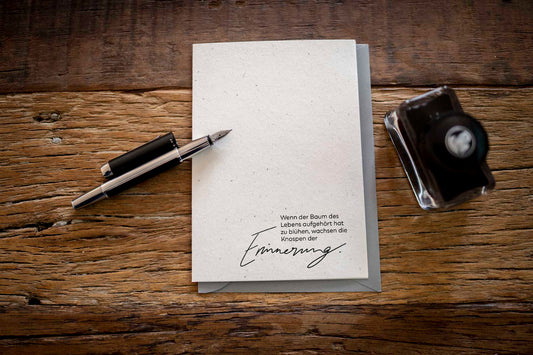 Wenn der Baum des
Lebens aufgehört hat
zu blühen, wachsen die
Knospen der
Erinnerung.